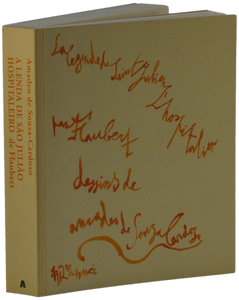 Amadeo de Souza-Cardoso
A LENDA DE SÃO JULIÃO
HOSPITALEIRO de Flaubert
A
La légende de Saint Julien
L'hospitalier
par Flaubert
dessins de
amadeo de Souza Cardoso